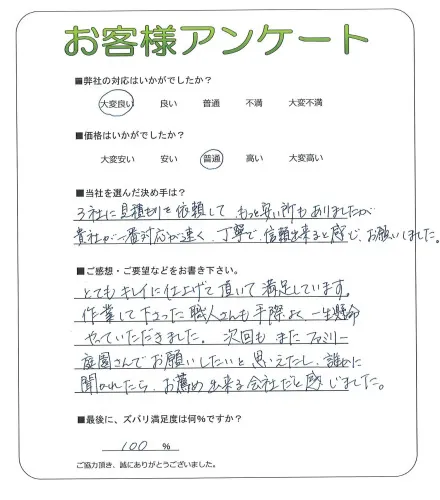 お客様アンケート
■弊社の対応はいかがでしたか?
大変良い 良い 普通 不満 大変不満
■価格はいかがでしたか?
大変安い 安い 普通 高い 大変高い
■当社を選んだ決め手は?
3社に見積もりを依頼して、もっと安い所もありましたが
貴社が一番対応が速く、丁寧で、信頼出来ると感じ、お願いしました。
■ご感想・ご要望などをお書き下さい。
とてもキレイに仕上げて頂いて満足しています。
作業して下さった職人さんも手際よく、一生懸命
やっていただきました。 次回も またファミリー
庭園さんでお願いしたいと思えたし、誰かに
聞かれたら、お薦め出来る会社だと感じました。
■最後に、ズバリ満足度は何%ですか?
100 %
ご協力頂き、誠にありがとうございました。